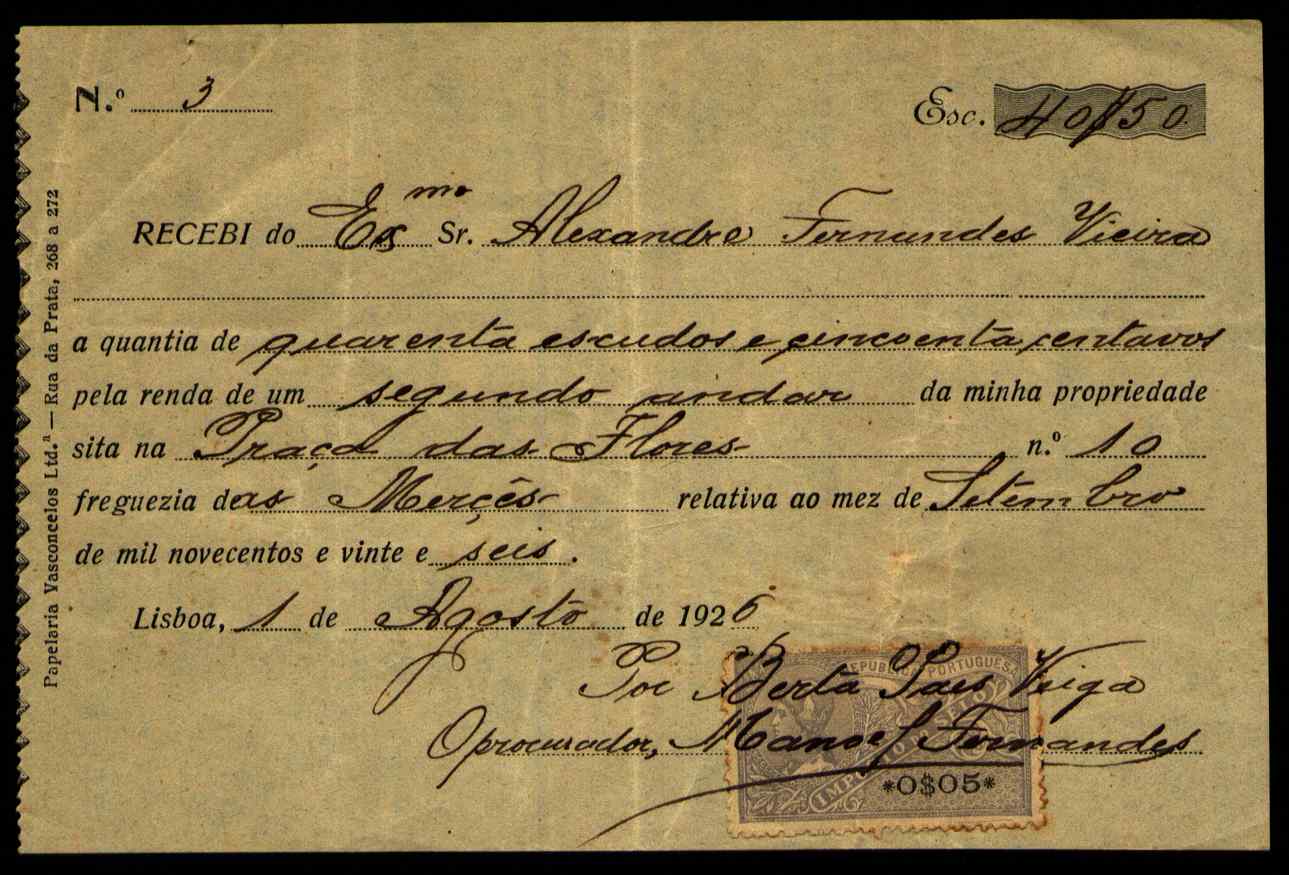 N.º 3 Esc. 40$50
RECEBI do Exmo Sr. Alexandre Fernandes Vieira
a quantia de quarenta escudos e cincoenta centavos
pela renda de um segundo andar da minha propriedade
sita na Praça das Flores n.º 10
freguezia das Mercês relativa ao mez de Setembro
de mil novecentos e vinte e seis.
Lisboa, 1 de Agosto de 1926
Por Berta Paes Veiga
O procurador, Manoel Fernandes
REPUBLICA PORTUGUESA
IMPOSTO DO SELO
*0$05*
Papelaria Vasconcelos Ltd.ª — Rua da Prata, 268 a 272